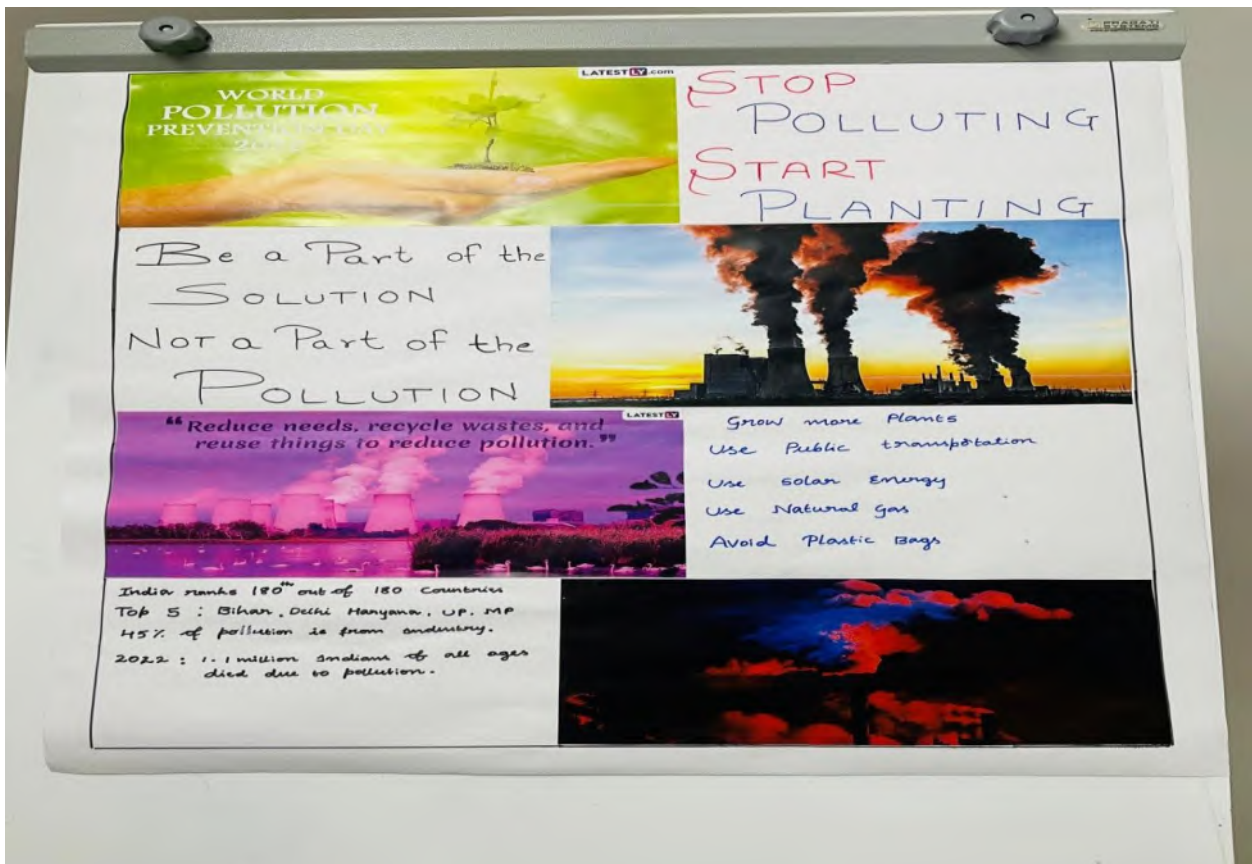 PRAGATI
SYSTEMS
LATESTLY.com
WORLD
POLLUTION
PREVENTION DAY
STOP
POLLUTING
START
PLANTING
Be a Part of the
SOLUTION
NOT a Part of the
POLLUTION
LATESTLY
“Reduce needs, recycle wastes, and
reuse things to reduce pollution.”
Grow more Plants
Use Public transportation
Use Solar Energy
Use Natural Gas
Avoid Plastic Bags
India ranks 180th out of 180 Countries
Top 5 : Bihar, Delhi Haryana, UP, MP
45% of pollution is from industry.
2022 : 1.1 million Indians of all ages
died due to pollution.